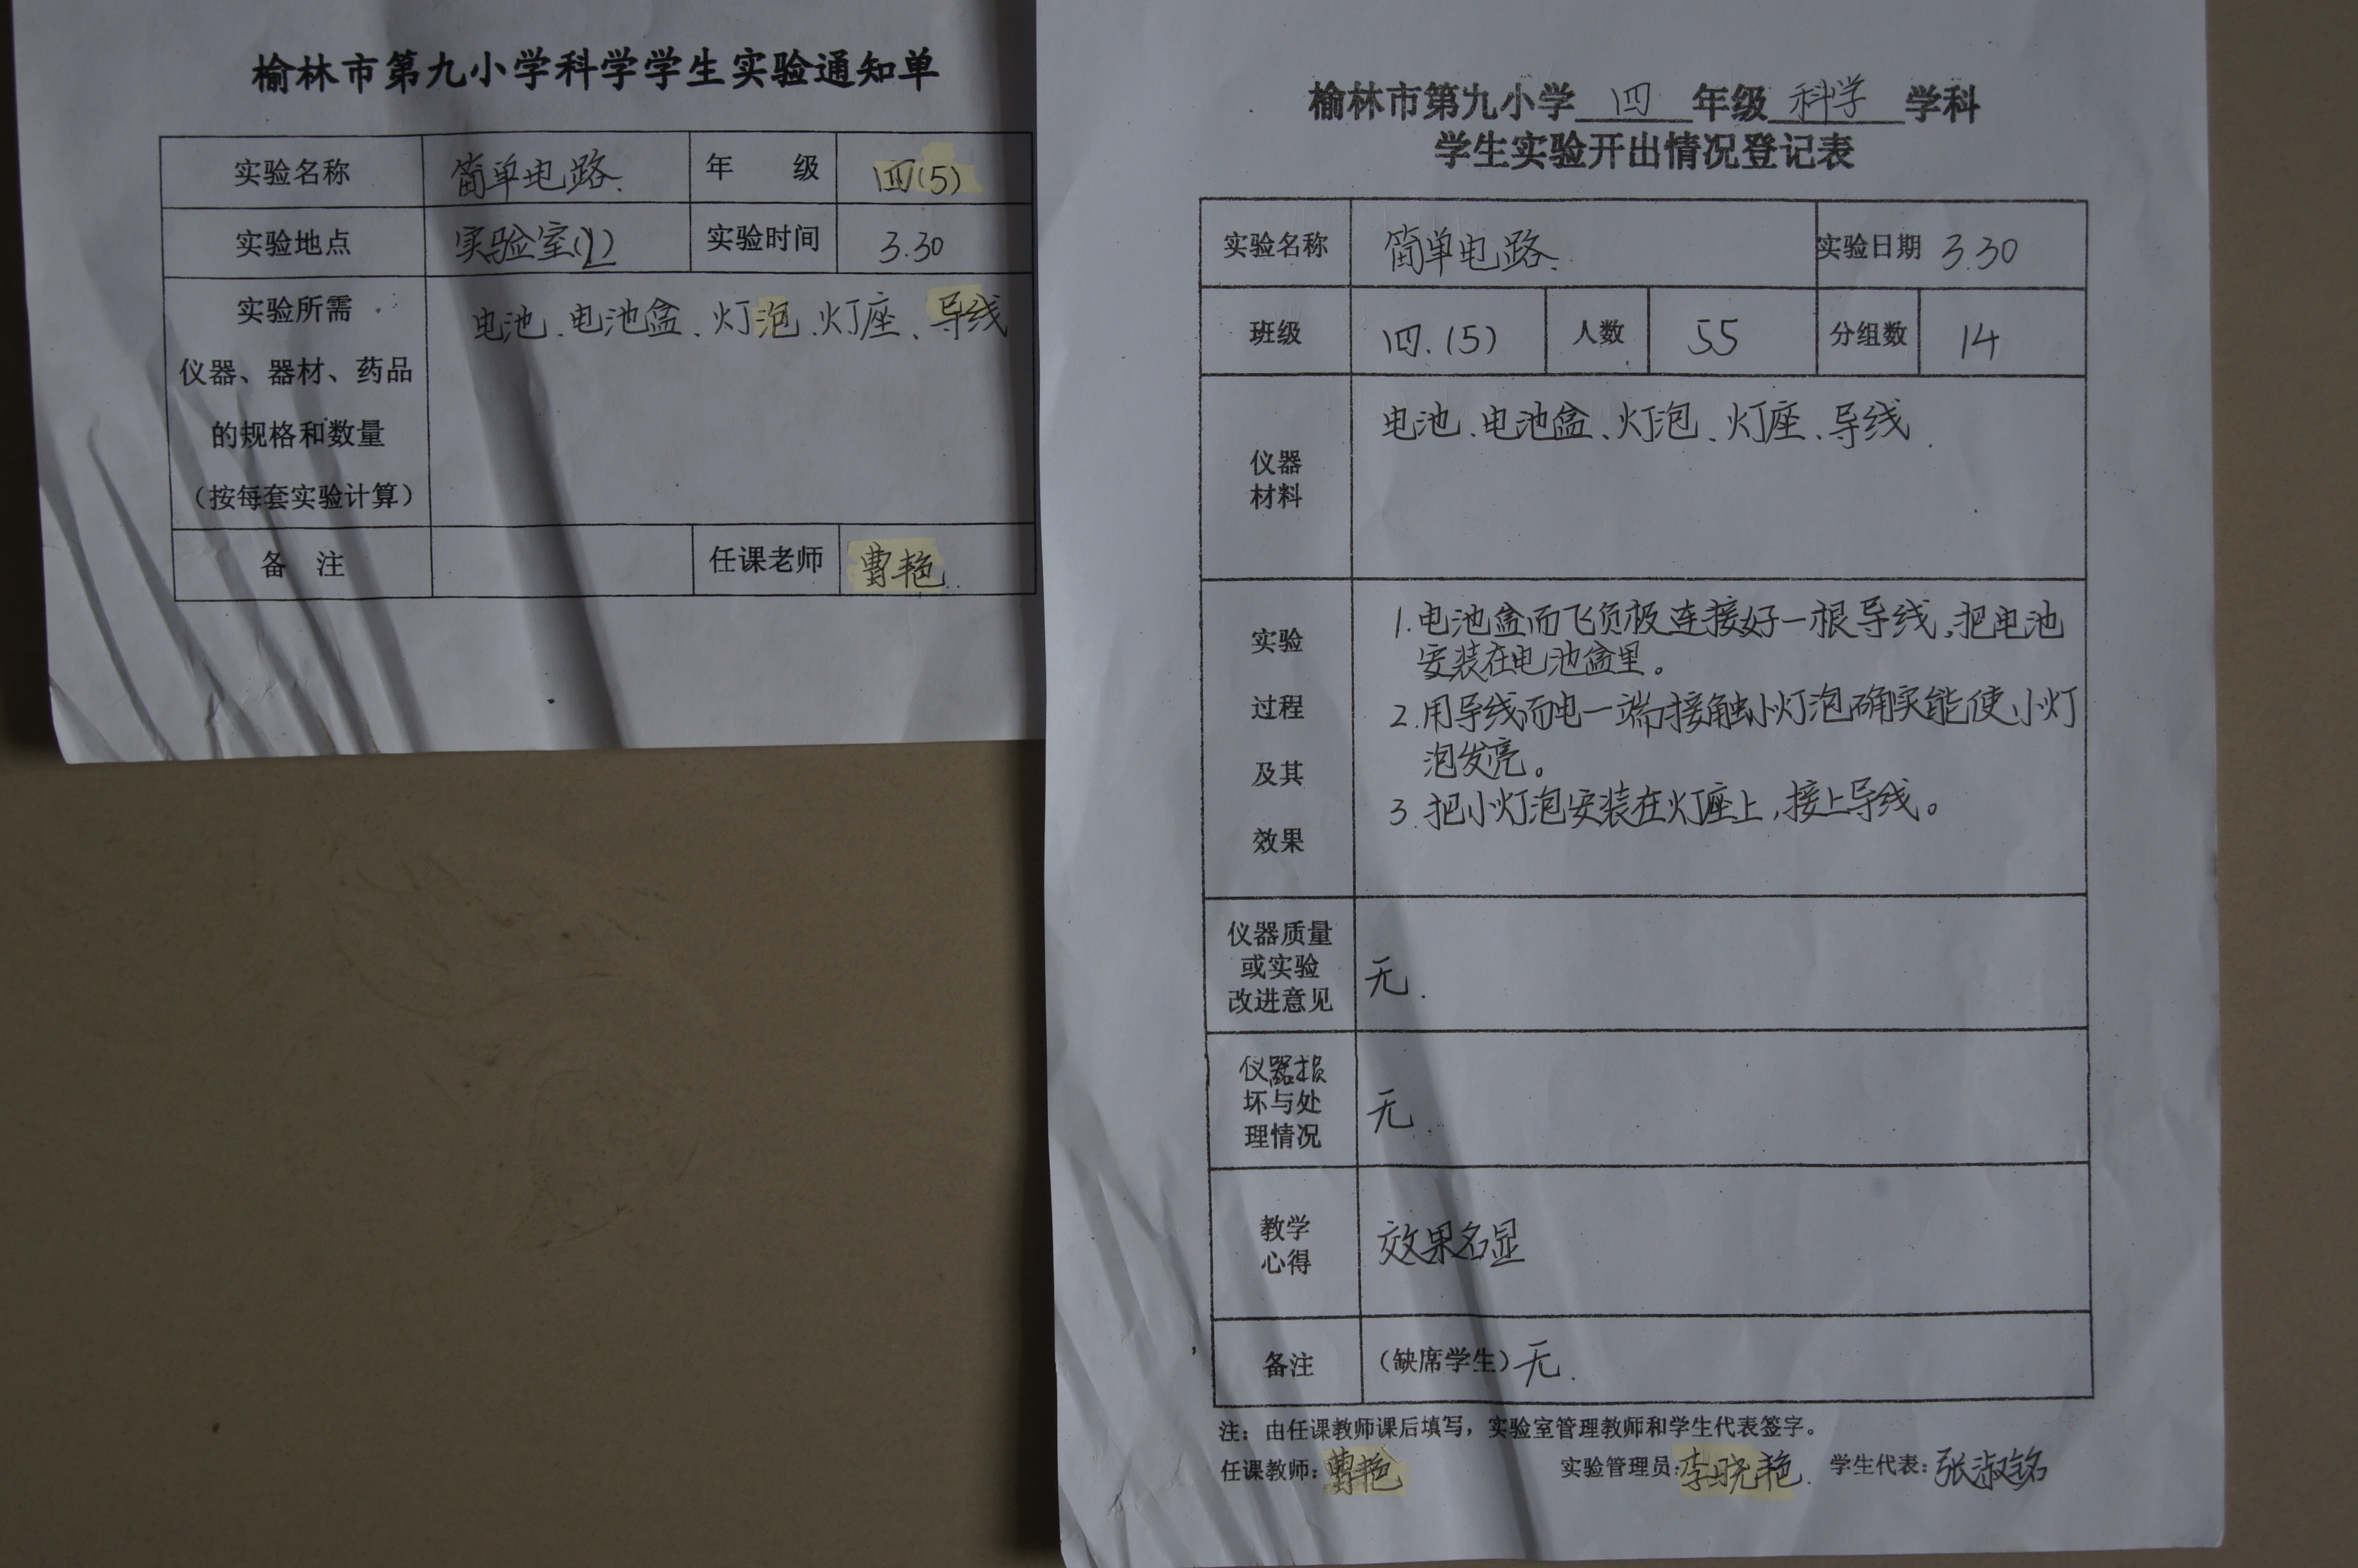 榆林市第九小学科学学生实验通知单
实验名称 简单电路. 年 级 四(5)
实验地点 实验室(1) 实验时间 3.30
实验所需
仪器、器材、药品
的规格和数量
(按每套实验计算)
电池、电池盒、灯泡、灯座、导线
备 注 任课老师 曹艳.
榆林市第九小学 四 年级 科学 学科
学生实验开出情况登记表
实验名称 简单电路. 实验日期 3.30
班级 四.(5) 人数 55 分组数 14
仪器
材料
电池、电池盒、灯泡、灯座、导线.
实验
过程
及其
效果
1.电池盒而飞负极连接好一根导线,把电池
安装在电池盒里。
2.用导线而电一端接触小灯泡确实能使小灯
泡发亮。
3.把小灯泡安装在灯座上,接上导线。
仪器质量
或实验
改进意见
无.
仪器损
坏与处
理情况
无.
教学
心得
效果名显
备注 (缺席学生)无.
注:由任课教师课后填写,实验室管理教师和学生代表签字。
任课教师:曹艳 实验管理员:李晓艳. 学生代表:张淑铭